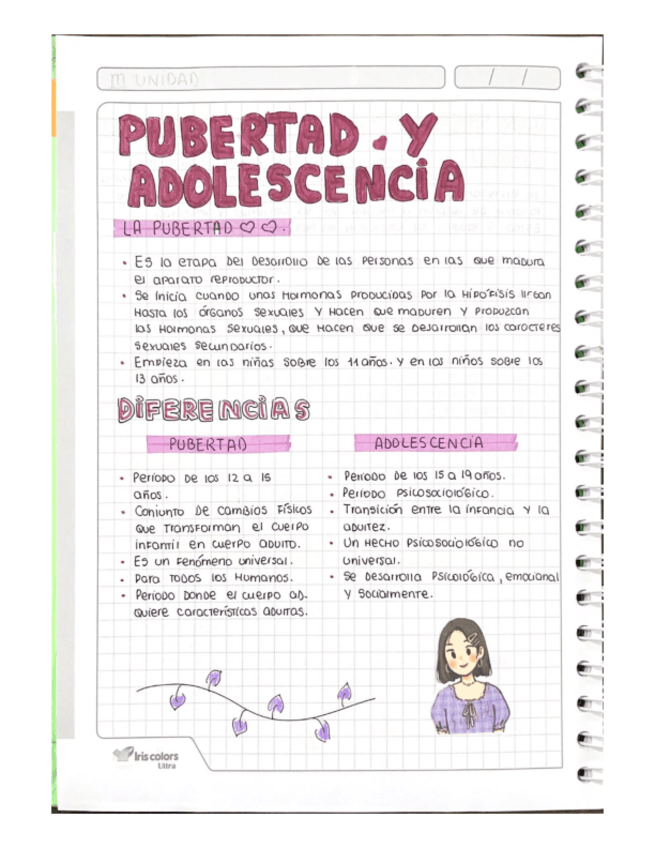 III UNIDAD
/ /
PUBERTAD Y
ADOLESCENCIA
LA PUBERTAD
• Es la etapa del desarrollo de las personas en las que madura
el aparato reproductor.
• Se inicia cuando unas hormonas producidas por la hipófisis llegan
hasta los órganos sexuales y hacen que maduren y produzcan
las hormonas sexuales, que hacen que se desarrollan los caracteres
sexuales secundarios.
• Empieza en las niñas sobre los 11 años. y en los niños sobre los
13 años.
DIFERENCIAS
PUBERTAD
• Período de los 12 a 15
años.
• Conjunto de cambios físicos
que transforman el cuerpo
infantil en cuerpo adulto.
• Es un fenómeno universal.
• Para todos los humanos.
• Período donde el cuerpo ad-
quiere características adultas.
ADOLESCENCIA
• Período de los 15 a 19 años.
• Período psicosociológico.
• Transición entre la infancia y la
adultez.
• Un hecho psicosociológico no
universal.
• Se desarrolla psicológica, emocional
y socialmente.
Iris colors
Ultra